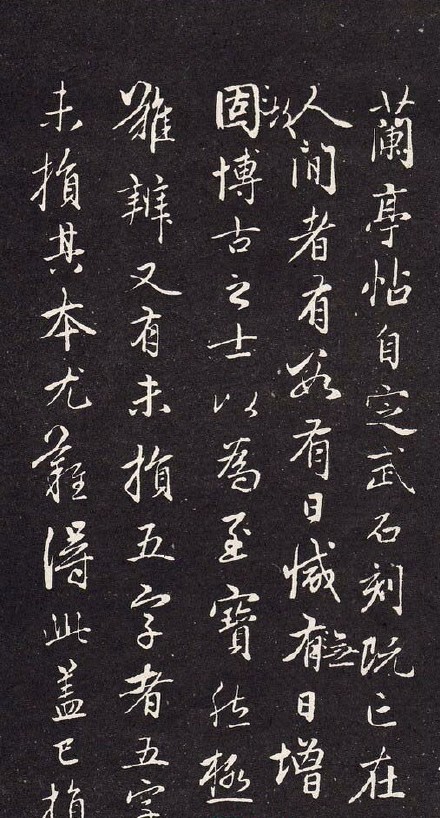 蘭亭帖自定武石刻既亡在
人間者有數有日減有無日增
故固博古之士以為至寶然極
難辨又有未損五字者五字
未損其本尤難得此蓋已損